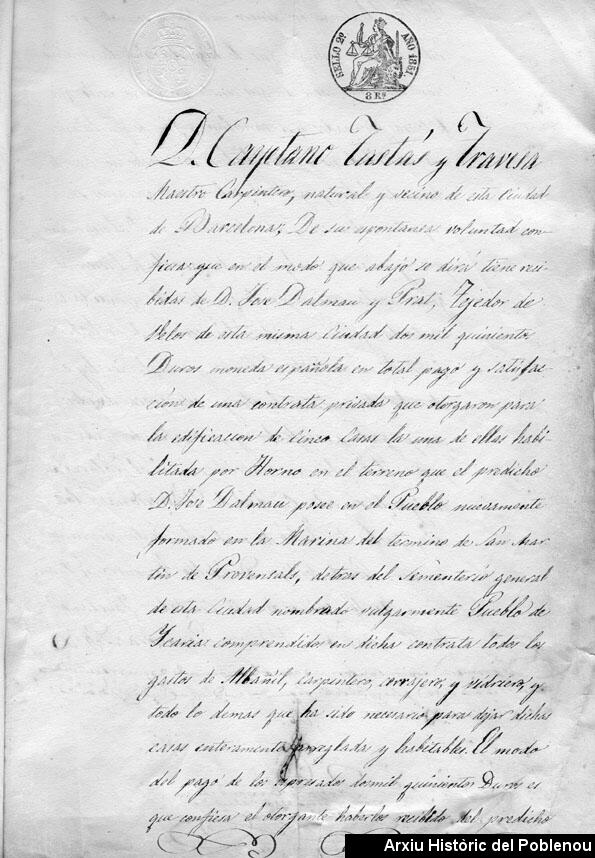 SELLO 2º AÑO 1851
8 Rs
D. Cayetano Tastás y Travesa
Maestro Carpintero, natural y vecino de esta Ciudad
de Barcelona; De su espontanea voluntad con-
fiesa que en el modo que abajo se dirá tiene reci-
bidas de D. Jose Dalmau y Prat, Tejedor de
Velos de esta misma Ciudad dos mil quinientos
Duros moneda española en total pago y satisfac-
ción de una contrata privada que otorgaron para
la edificacion de cinco Casas la una de ellas habi-
litada por Horno en el terreno que el predicho
D. Jose Dalmau posee en el Pueblo nuevamente
formado en la Marina del termino de San Mar-
tin de Provensals, detras del Sementerio general
de esta Ciudad nombrado vulgarmente Pueblo de
Icaria comprendidos en dicha contrata todos los
gastos de Albañil, carpintero, cerrajero, y vidriero, y
todo lo demas que ha sido necesario para dejar dichas
casas enteramente arreglada y habitables. El modo
del pago de los espresados dosmil quinientos Duros es
que confiesa el otorgante haberlos recibido del predicho
Arxiu Històric del Poblenou